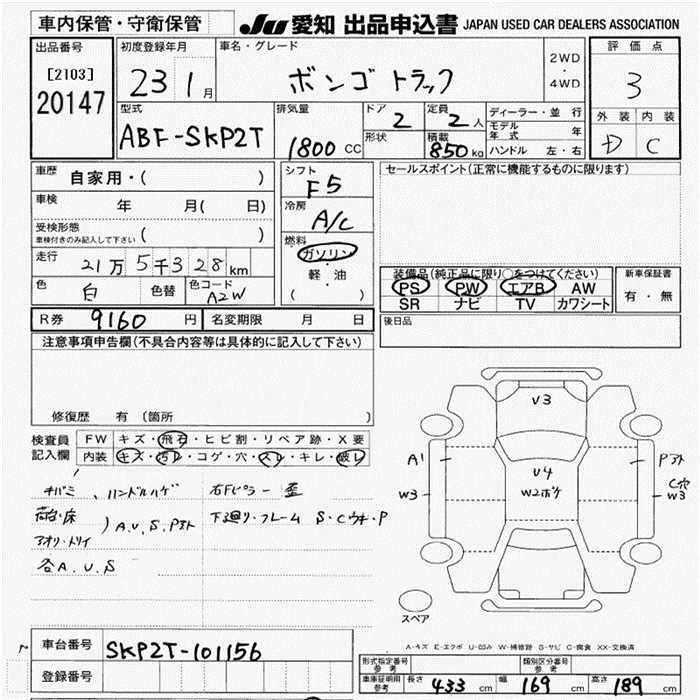 車内保管・守衛保管
JU 愛知 出品申込書 JAPAN USED CAR DEALERS ASSOCIATION
出品番号
[2103]
20147
初度登録年月
23 1月
車名・グレード
ボンゴ トラック
2WD
・
4WD
評価点
3
外装 内装
D C
型式
ABF-SKP2T
排気量
1800 CC
ドア
2
形状
定員
2人
積載
850kg
ディーラー・並行
モデル年式 年
ハンドル 左・右
車歴
自家用・( )
車検 年 月( 日)
受検形態
車検付きのみ記入して下さい ( )
走行 21万5千328km
色 白 色替 色コード A2W
シフト
F5
冷房
A/C
燃料
ガソリン
・
軽・油
( )
セールスポイント(正常に機能するものに限ります)
装備品(純正品に限り○をつけてください)
PS PW エアB AW
SR ナビ TV カワシート
新車保証書
有・無
R券 9160円 名変期限 月 日
後日品
注意事項申告欄(不具合内容等は具体的に記入して下さい)
修復歴 有 (箇所 )
検査員
記入欄
FW キズ・飛石・ヒビ割・リペア跡・X要
内装 キズ・汚レ・コゲ・穴・スレ・キレ・破レ
ハンドルハゲ
右Fピラー 歪
荷台・床
アオリ・トリイ
) A.U.S.Pオト
下廻り・フレーム S・Cウキ・P
各A.U.S
V3
A1
W3
V4
W2ボケ
Pオト
C穴
W3
スペア
A-キズ E-エクボ U-凹み W-補修跡 S-サビ C-腐食 XX-交換済
車台番号 SKP2T-101156
登録番号
形式指定番号
参考
類別区分番号
参考
車庫証明用
参考
長さ 433 cm 幅 169 cm 高さ 189 cm